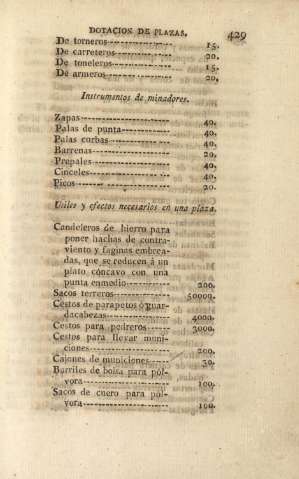 DOTACION DE PLAZAS. 429
De torneros 15.
De carreteros 20.
De toneleros 15.
De armeros 20.
Instrumentos de minadores.
Zapas 40.
Palas de punta 40.
Palas corbas 40.
Barrenas 20.
Prepales 40.
Cinceles 40.
Picos 20.
Utiles y efectos necesarios en una plaza.
Candeleros de hierro para
poner hachas de contra-
viento y faginas embrea-
das, que se reducen á un
plato cóncavo con una
punta enmedio 200.
Sacos terreros 50000.
Cestos de parapetos ó guar-
dacabezas 4000.
Cestos para pedreros 3000.
Cestos para llevar muni-
ciones 200.
Cajones de municiones 30.
Barriles de bolsa para pól-
vora 100.
Sacos de cuero para pól-
vora 100.